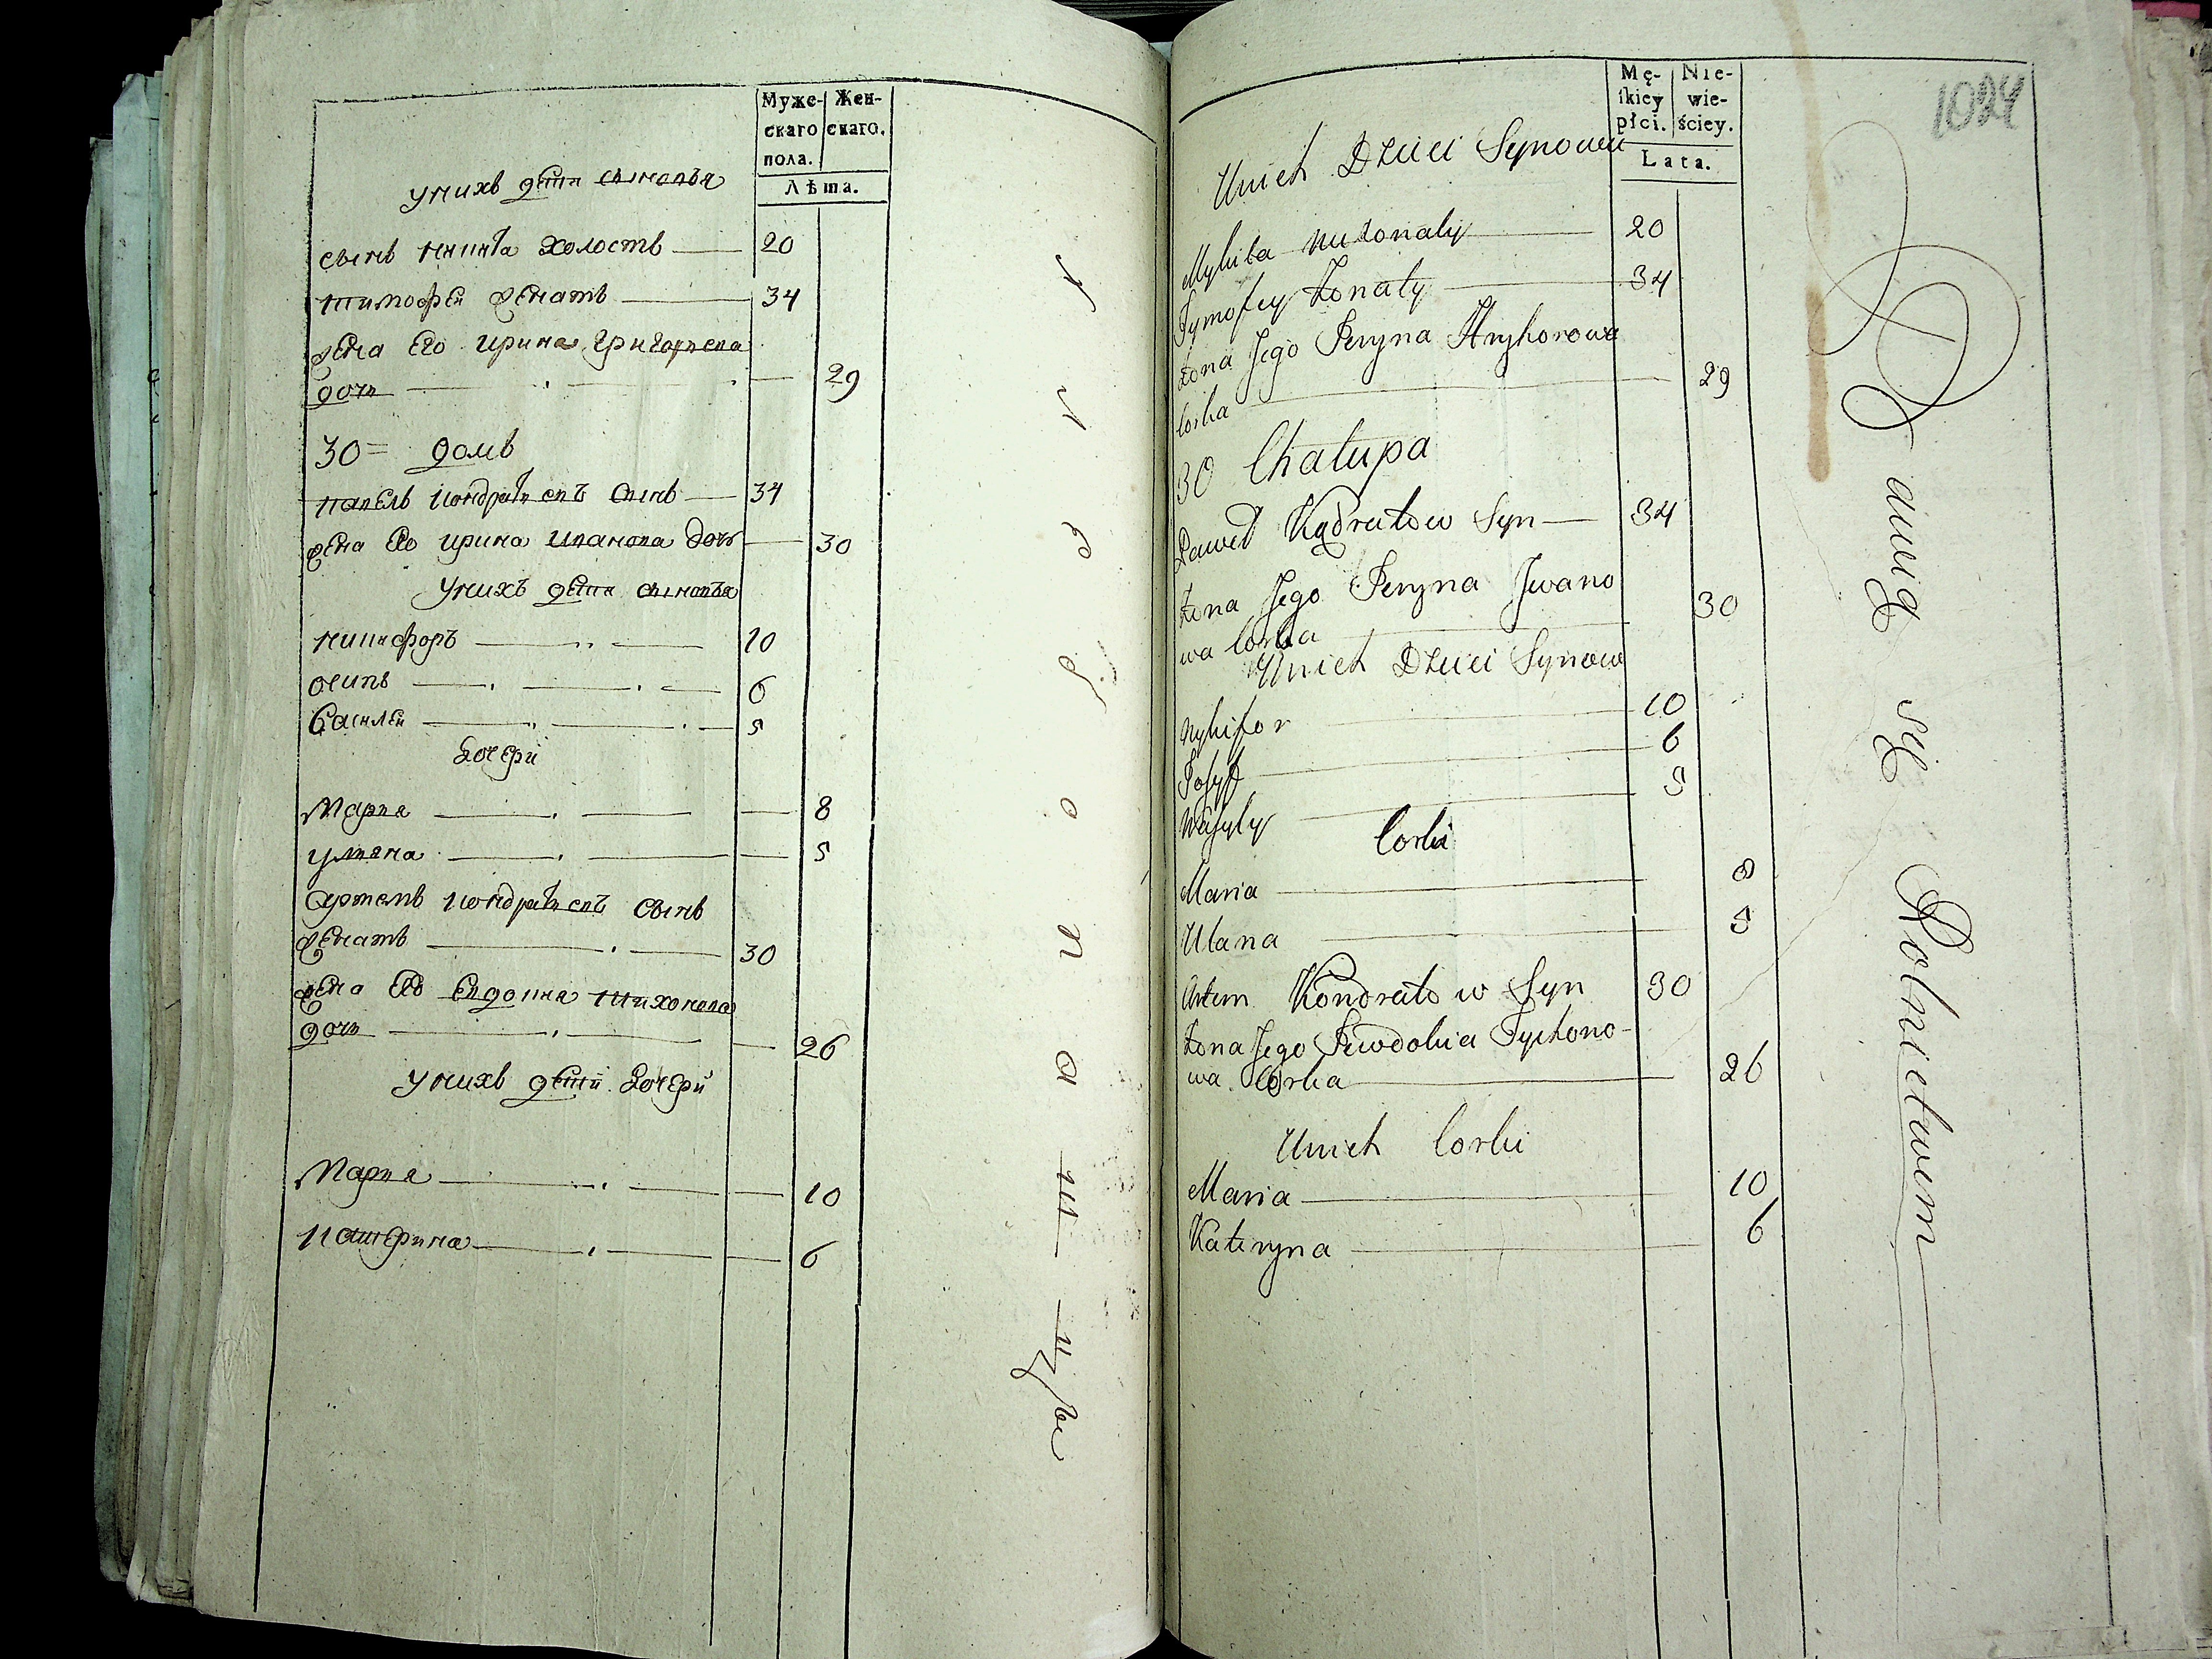 Муже-
скаго
пола.
Жен-
скаго.
Лѣта.
у нихъ дети сыновья
сынъ никита холостъ 20
тимофей женатъ 34
жена Его ирина григорьева
дочь 29
30 = домъ
павелъ кондратьевъ сынъ 34
жена Его ирина иванова дочь 30
у нихъ дети сыновья
никифоръ 10
осипъ 6
василей 5
дочери
Мария 8
ульяна 5
артемъ кондратьевъ сынъ
женатъ 30
жена Его Евдокия тихонова
дочь 26
у нихъ дети дочери
Мария 10
катерина 6
Mę-
skiey
płci.
Nie-
wie-
ściey.
Lata.
1024
Unich Dzieci Synowie
Mykita niezonaty 20
Tymofey zonaty 34
zona Jego Jeryna Hryhorowa
corka 29
30 Chałupa
Paweł Kądratow Syn 34
zona Jego Jeryna Jwano
wa corka 30
Unich Dzieci Synow
Nykifor 10
Josyf 6
Wasyly 5
Corki
Maria 8
Ulana 5
Artem Kondratow Syn 30
zona Jego Jewdokia Tychono-
wa Corka 26
Unich Corki
Maria 10
Kateryna 6
Bawią się Rolnictwem